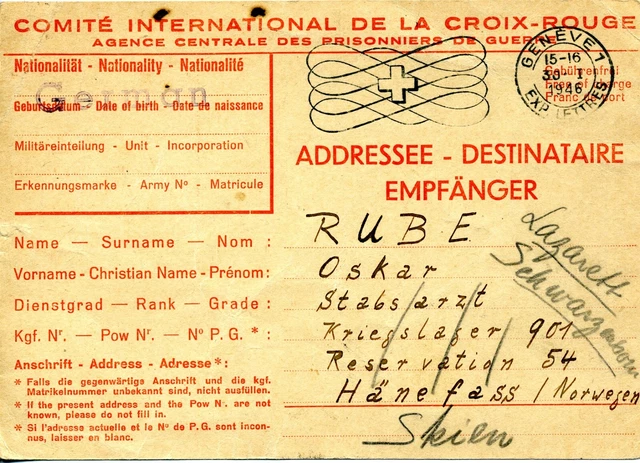 COMITÉ INTERNATIONAL DE LA CROIX-ROUGE
AGENCE CENTRALE DES PRISONNIERS DE GUERRE
Nationalität - Nationality - Nationalité
German
Geburtsdatum - Date of birth - Date de naissance
Militäreinteilung - Unit - Incorporation
Erkennungsmarke - Army Nº - Matricule
GENÈVE 1
15-16
30. I
1946
EXP. LETTRES
Gebührenfrei
Free of charge
Franc de port
ADDRESSEE - DESTINATAIRE
EMPFÄNGER
Name — Surname — Nom : RUBE
Vorname - Christian Name - Prénom: Oskar
Dienstgrad — Rank — Grade : Stabsarzt
Kgf. Nr. — Pow Nr. — Nº P. G. * : Kriegslager 901
Reservation 54
Anschrift - Address - Adresse * : Hänefass / Norwegen
Lazarett
Skien
* Falls die gegenwärtige Anschrift und die kgf.
Matrikelnummer unbekannt sind, nicht ausfüllen.
* If the present address and the Pow Nr. are not
known, please do not fill in.
* Si l'adresse actuelle et le Nº de P. G. sont incon-
nus, laisser en blanc.